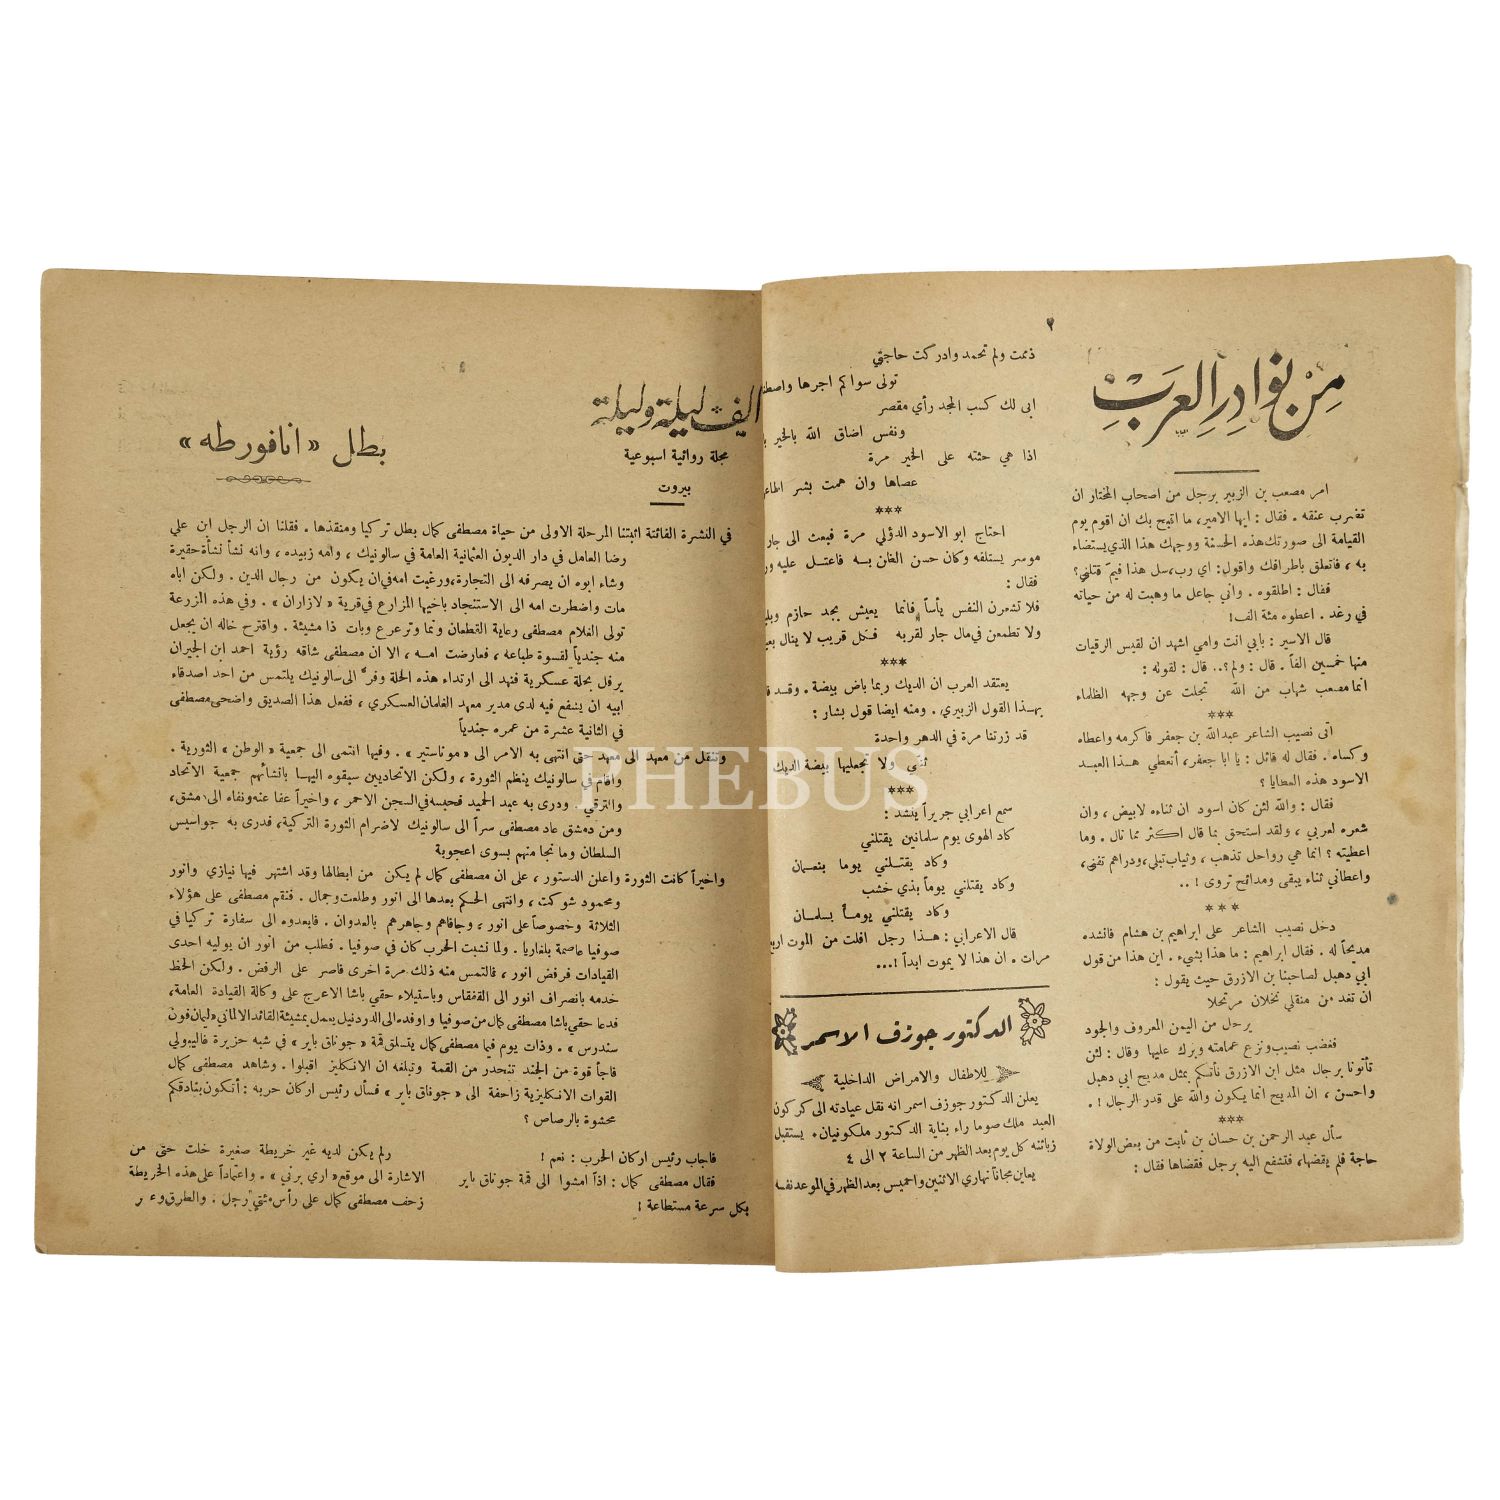 ٢
من نوادر العرب
امر مصعب بن الزبير برجل من اصحاب المختار ان
تضرب عنقه . فقال : ايها الامير، ما اقبح بك ان اقوم يوم
القيامة الى صورتك هذه الحسنة ووجهك هذا الذي يستضاء
به ، فاتعلق باطرافك واقول: اي رب، سل هذا فيمَ قتلني؟
فقال : اطلقوه . واني جاعل ما وهبت له من حياته
في رغد . اعطوه مئة الف!
قال الاسير : بابي انت وامي اشهد ان لقيس الرقيات
منها خمسين الفاً . قال : ولم؟.. قال : لقوله :
انما مصعب شهاب من الله تجلت عن وجهه الظلماء
***
اتى نصيب الشاعر عبدالله بن جعفر فاكرمه واعطاه
وكساه . فقال له قائل : يا ابا جعفر، أتعطي هـذا العبـد
الاسود هذه العطايا ؟
فقال : والله لئن كان اسود ان ثناءه لابيض ، وان
شعره لعربي ، ولقد استحق بما قال اكثر مما نال . وما
اعطيته ؟ انما هي رواحل تذهب ، وثياب تبلى، ودراهم تفنى،
واعطاني ثناء يبقى ومدائح تروى ! ..
***
دخل نصيب الشاعر على ابراهيم بن هشام فانشده
مديحاً له . فقال ابراهيم : ما هذا بشيء . اين هذا من قول
ابي دهبل لصاحبنا بن الازرق حيث يقول :
ان تغد من منقلي نخلان مرتحلا
يرحل من اليمن المعروف والجود
فغضب نصيب ونزع عمامته وبرك عليها وقال : لئن
تأتونا برجال مثل ابن الازرق نأتكم بمثل مديح ابي دهبل
واحسن ، ان المديح انما يكون والله على قدر الرجال ! .
***
سأل عبد الرحمن بن حسان بن ثابت من بعض الولاة
حاجة فلم يقضها، فتشفع اليه برجل فقضاها فقال :
ذممت ولم تحمد وادركت حاجتي
تولى سواكم اجرها
ابى لك كسب المجد رأي مقصر
ونفس اضاق الله بالخير
اذا هي حثته على الخير مرة
عصاها وان همت بشر
***
احتاج ابو الاسود الدؤلي مرة فبعث الى جار
موسر يستلفه وكان حسن الظن بـه فاعتـل عليه
فقال :
فلا تشعرن النفس يأساً فانما يعيش بجد حازم
ولا تطمعن في مال جار لقربه فكل قريب لا ينال
***
يعتقد العرب ان الديك ربما باض بيضة . وقـد
بهـذا القول الزبيري . ومنه ايضا قول بشار :
قد زرتنا مرة في الدهر واحدة
ثني ولا تجعليها بيضة الديك
***
سمع اعرابي جريراً ينشد :
كاد الهوى يوم سلمانين يقتلني
وكاد يقتـلني يوما بنعمـان
وكاد يقتلني يوماً بذي خشب
وكاد يقتلني يومـاً بسلمـان
قال الاعرابي : هـذا رجل افلت من الموت
مرات . ان هذا لا يموت ابداً !...
الدكتور جوزف الاسمر
للاطفال والامراض الداخلية
يعلن الدكتور جوزف اسمر انه نقل عيادته الى كركون
العبد ملك صوما راء بناية الدكتور ملكونيان. يستقبل
زبائنه كل يوم بعد الظهر من الساعة ٢ الى ٤
يعاين مجاناً نهاري الاثنين واحميس بعد الظهر في الموعد نفسه
الف ليلة وليلة
مجلة روائية اسبوعية
بيروت
بطل « انافورطه »
في النشرة الفائتة اثبتنا المرحلة الاولى من حياة مصطفى كمال بطل تركيا ومنقذها . فقلنا ان الرجل ابن علي
رضا العامل في دار الديون العثمانية العامة في سالونيك ، وامه زبيده ، وانه نشأ نشأة حقيرة
وشاء ابوه ان يصرفه الى التجارة، ورغبت امه في ان يكون من رجال الدين . ولكن اباه
مات واضطرت امه الى الاستنجاد باخيها المزارع في قرية « لازاران » . وفي هذه الزرعة
تولى الغلام مصطفى رعاية القطعان ونما وترعرع وبات ذا مشيئة . واقترح خاله ان يجعل
منه جندياً لقسوة طباعه ، فعارضت امـه ، الا ان مصطفى شاقه رؤية احمد ابن الجيران
يرفل بحلة عسكرية فنهد الى ارتداء هذه الحلة وفرّ الى سالونيك يلتمس من احد اصدقاء
ابيه ان يشفع فيه لدى مدير معهد الغلمان العسكري ، ففعل هذا الصديق واضحى مصطفى
في الثانية عشرة من عمره جندياً
وتنقل من معهد الى معهد حتى انتهى به الامر الى « موناستير » . وفيها انتمى الى جمعية « الوطن » الثورية .
واقام في سالونيك ينظم الثورة ، ولكن الاتحاديين سبقوه اليهـا بانشائهم جمعية الاتحاد
والترقي . ودرى به عبد الحميد فحبسه في السجن الاحمر ، واخيراً عفا عنه ونفاه الى دمشق ،
ومن دمشق عاد مصطفى سراً الى سالونيك لاضرام الثورة التركية، فدرى به جواسيس
السلطان وما نجا منهم بسوى اعجوبة
واخيراً كانت الثورة واعلن الدستور ، على ان مصطفى كمال لم يكن من ابطالها وقد اشتهر فيها نيازي وانور
ومحمود شوكت ، وانتهى الحكم بعدها الى انور وطلعت وجمال . فنقم مصطفى على هؤلاء
الثلاثة وخصوصاً على انور ، وجافاهم وجاهرهم بالعدوان . فابعدوه الى سفارة تركيا في
صوفيا عاصمة بلغاريا . ولما نشبت الحرب كان في صوفيا . فطلب من انور ان يوليه احدى
القيادات فرفض انور ، فالتمس منه ذلك مرة اخرى فاصر على الرفض . ولكن الحظ
خدمه بانصراف انور الى القفقاس وباستيلاء حقي باشا الاعرج على وكالة القيادة العامة،
فدعا حقي باشا مصطفى كمال من صوفيا واوفده الى الدردنيل يعمل بمشيئة القائد الالماني « ليمان فون
سندرس » . وذات يوم فيما مصطفى كمال يتسلق قمة « جوناق باير » في شبه جزيرة غاليبولي
فاجأ قوة من الجند تنحدر من القمة وتبلغه ان الانكليز اقبلوا . وشاهد مصطفى كمال
القوات الانكليزية زاحفة الى « جوناق باير » فسأل رئيس اركان حربه : أتكون بنادقكم
محشوة بالرصاص ؟
فاجاب رئيس اركان الحرب : نعم !
فقال مصطفى كمال : اذاً امشوا الى قمة جوناق باير
بكل سرعة مستطاعة !
ولم يكن لديه غير خريطة صغيرة خلت حتى من
الاشارة الى موقع « اري برني » . واعتماداً على هذه الخريطة
زحف مصطفى كمال على رأس مئتي رجل . والطرق
PHEBUS